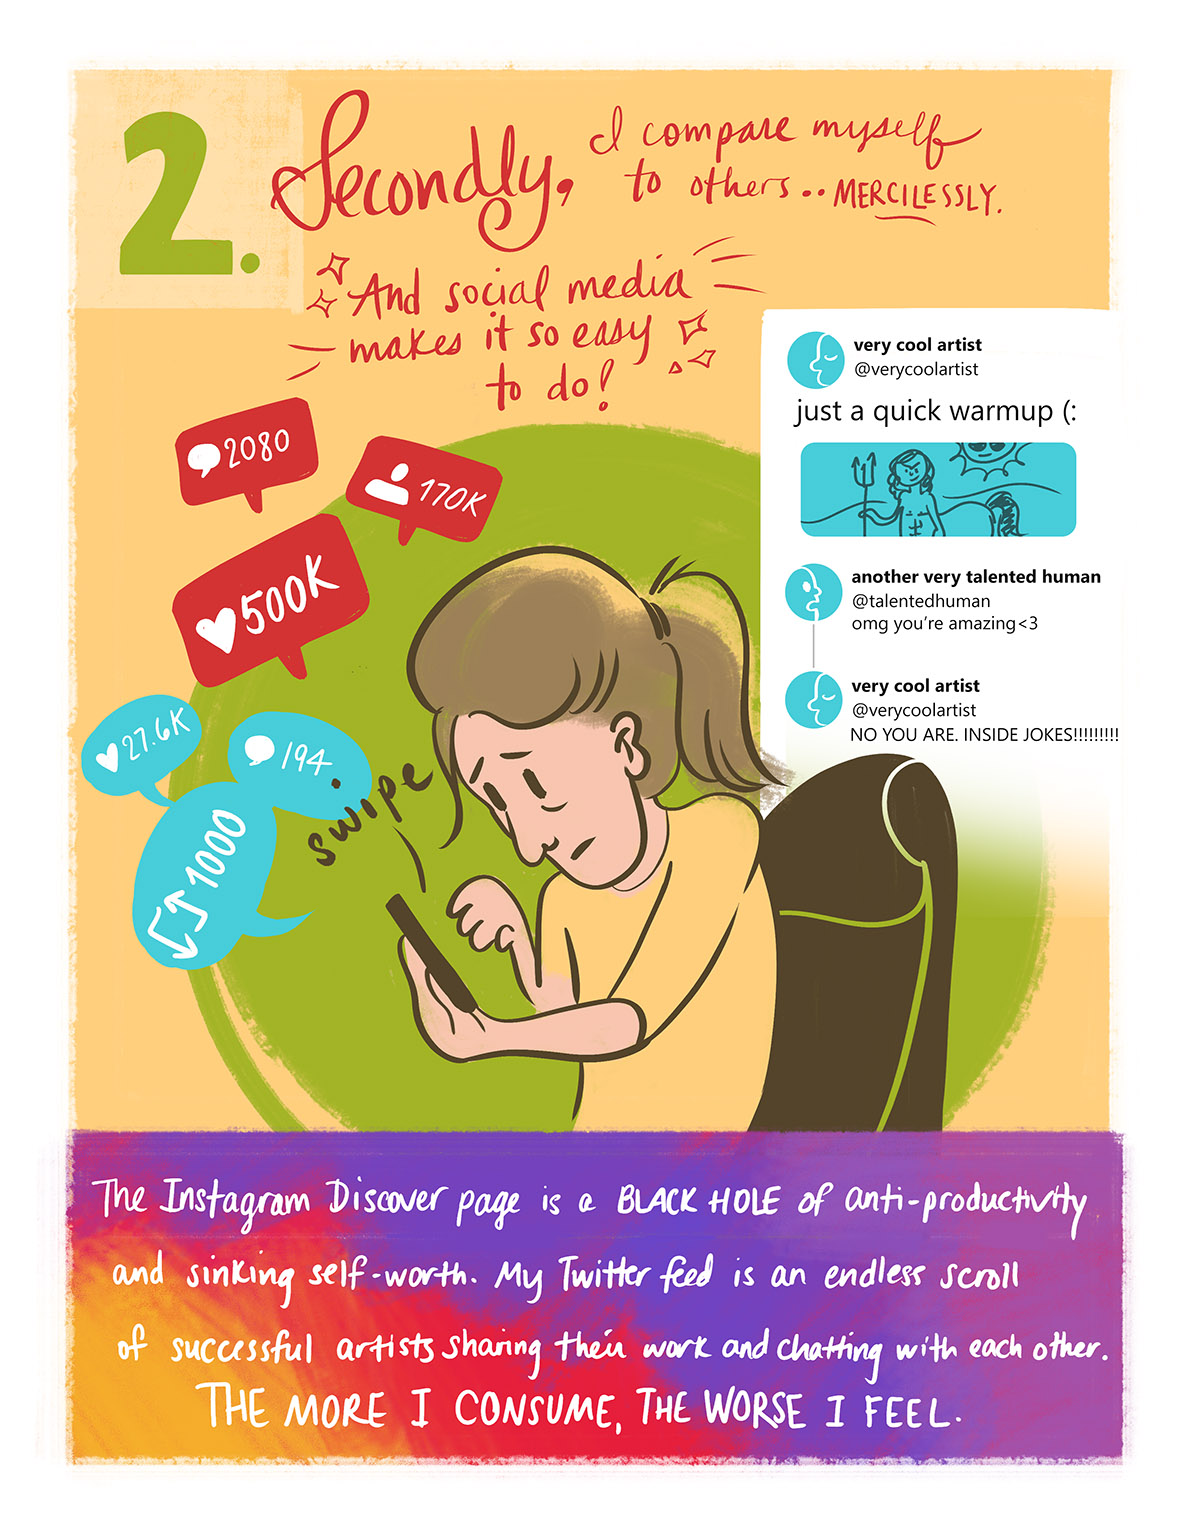 2.
Secondly, I compare myself
to others.. MERCILESSLY.
And social media
makes it so easy
to do!
very cool artist
@verycoolartist
just a quick warmup (:
another very talented human
@talentedhuman
omg you're amazing<3
very cool artist
@verycoolartist
NO YOU ARE. INSIDE JOKES!!!!!!!!!
2080
170K
500K
27.6K
194
1000
swipe
The Instagram Discover page is a BLACK HOLE of anti-productivity
and sinking self-worth. My Twitter feed is an endless scroll
of successful artists sharing their work and chatting with each other.
THE MORE I CONSUME, THE WORSE I FEEL.